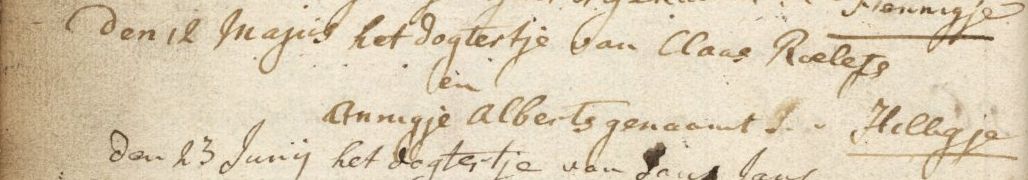 Hennigje
Den 12 Majus het dogtertje van Claas Roelefs
en
Annigje Alberts genaamt Hilligje
den 23 Junij het dogtertje van Jans Jans